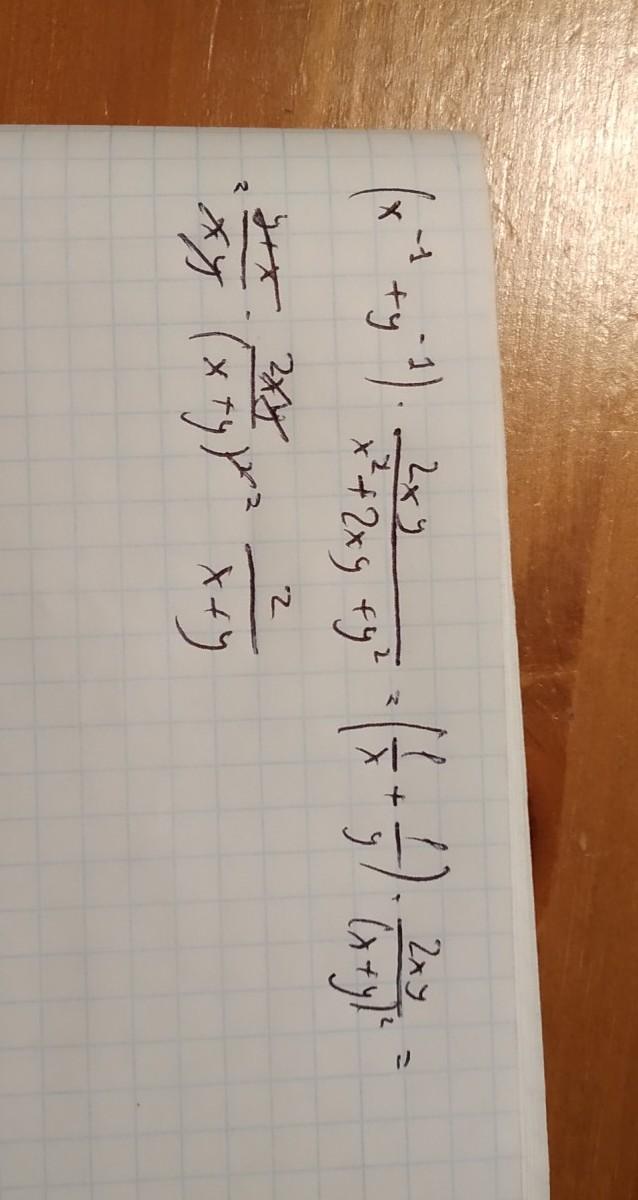 (x^{-1} + y^{-1}) · \frac{2xy}{x^2 + 2xy + y^2} = (\frac{1}{x} + \frac{1}{y}) · \frac{2xy}{(x+y)^2} =
= \frac{y+x}{xy} · \frac{2xy}{(x+y)^2} = \frac{2}{x+y}